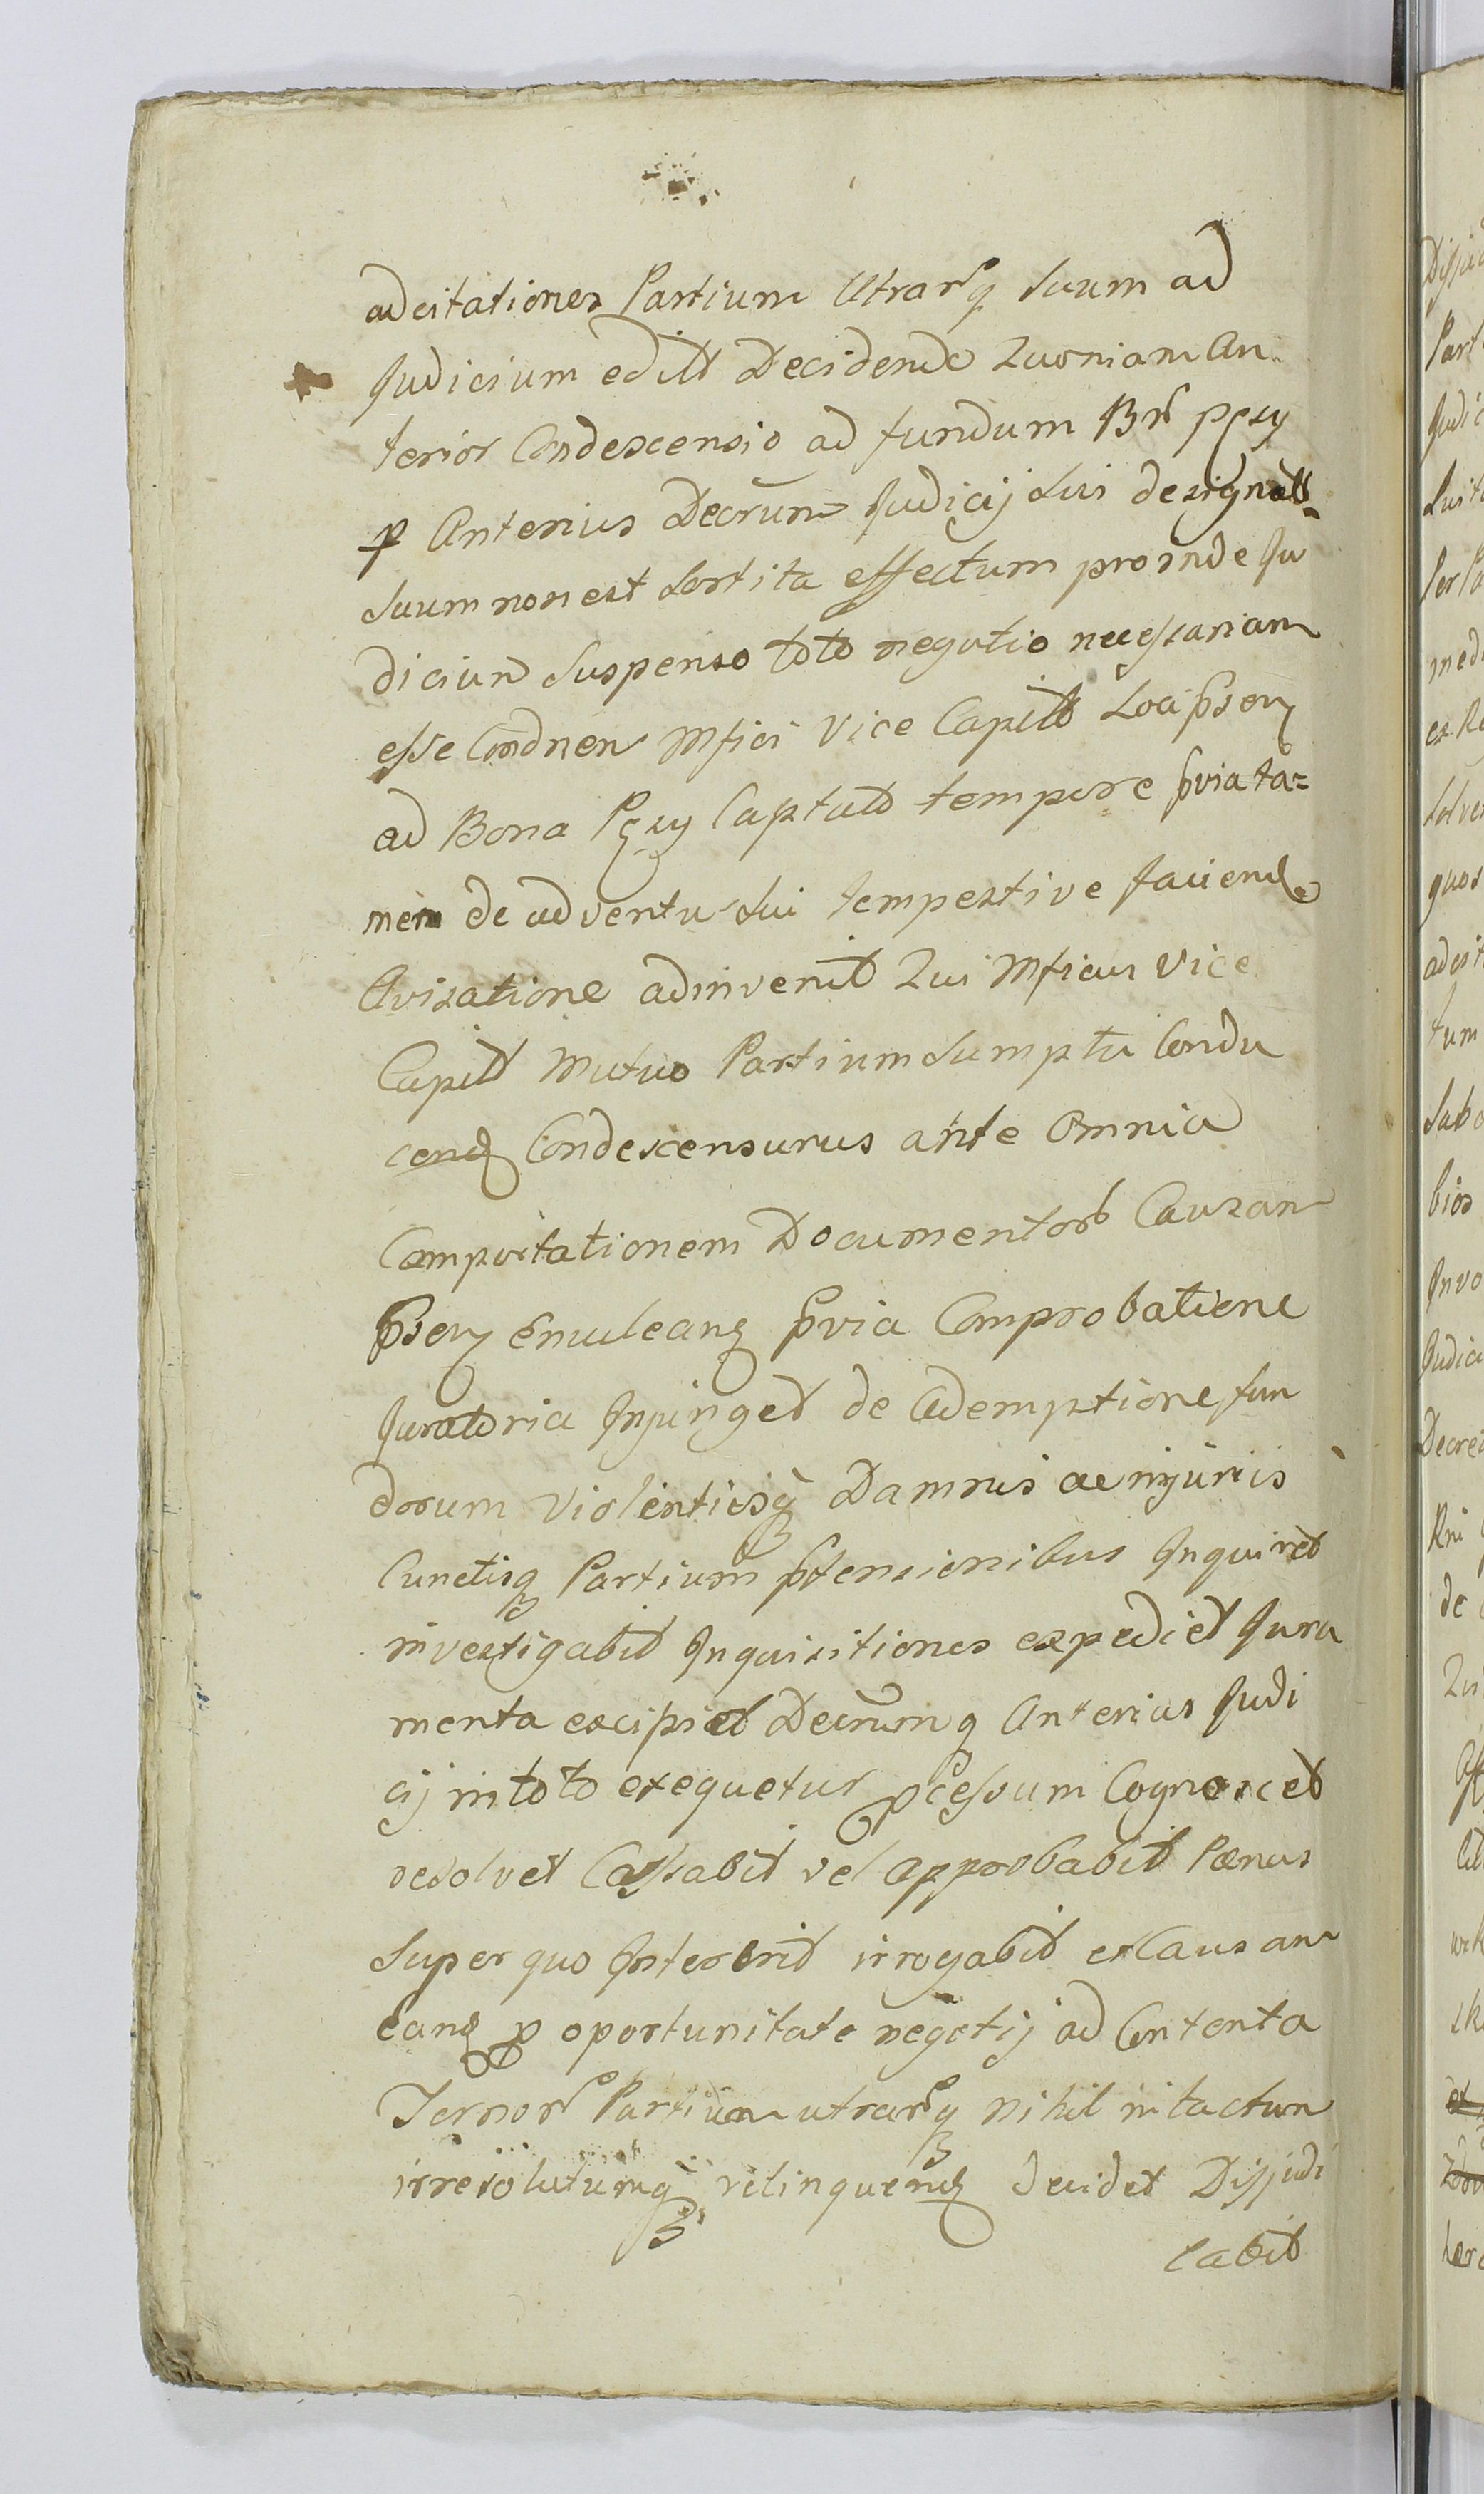 adcitationes Partium Utrarq suum ad
Judicium edill Decidendo Quoniam An
terior Condescensio ad fundum
p Anterius Decrum Judicij sui designatt
suum non est sortita effectum proinde Ju
dicium suspenso toto negotio necessariam
esse Condnen Mfici Vice Capitt Loci
ad Bona Captato tempore pvia ta=
men de adventu sui tempestive faciend
Avisatione adinvenit Qui Mficus Vice
Capitt Mutuo Partium sumptu Condu
cend Condescensurus ante Omnia
Comportationem Documentor Causam
Enuleanq pvia Comprobatione
Juratoria Injunget de Ademptione fun
dorum Violentiisq Damnis ac injuriis
Cunctisq Partium ptensionibus Inquiret
investigabit Inquisitiones expediet Jura
menta excipiet Decrumq Anterius Judi
cij in toto exequetur pcessum Cognoscet
resolvet Cassabit vel approbabit Pænas
super quo Intererit irrogabit et Causam
eand p oportunitate negotij ad Contenta
Termor Partium utrarq nihil intactum
irresolutumq relinquend decidet Disjudi
cabit